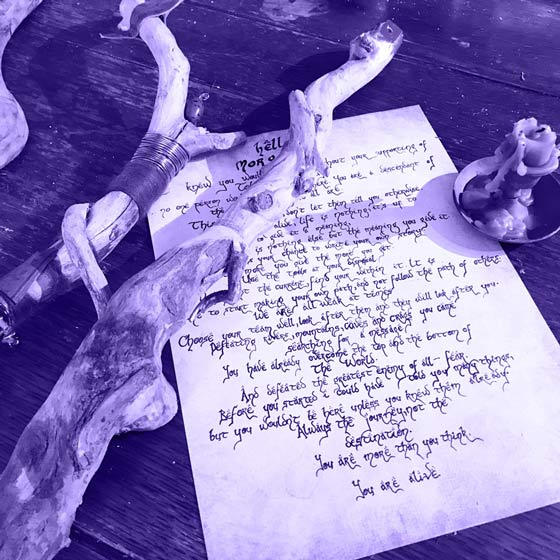 hell
Moro
knew you would hout your supporting of
no one person w here you are a descendant of
all are
don't let them tell you otherwise.
This alive, life is nothing: it's up to
to give it a meaning.
is nothing else but the meaning you give it.
your chance to write your own story
more you give the more you get
Use the tools at your disposal
not the current, find your within it. It is others
to start making your own path and not follow the path of
We are all weak at times
Choose your team well, look after them and they will look after you.
Defeating rivers, mountains, caves and crags you came
searching for a message:
You have already overcome the top and the bottom of
The World.
And defeated the greatest enemy of all - fear.
Before you started i could have told you many things,
but you wouldn't be here unless you knew them already
Always the journey, not the
destination.
You are more than you think.
You are alive